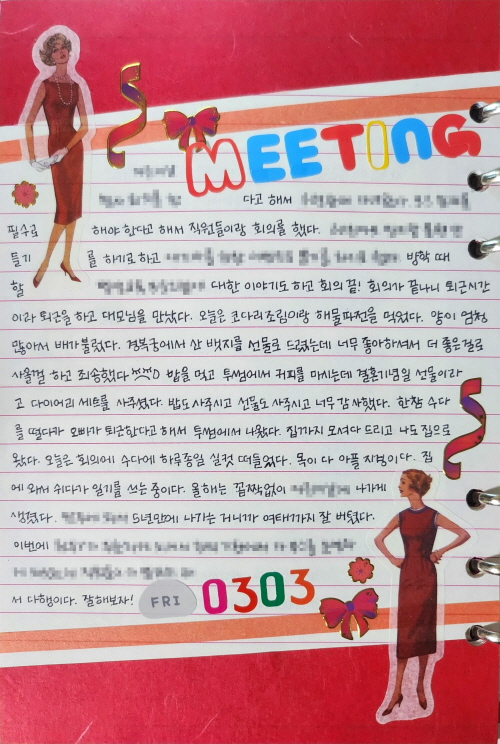 MEETING
다고 해서
필수로 해야 한다고 해서 직원들이랑 회의를 했다.
듣기 를 하기로 하고 방학 때
할 대한 이야기도 하고 회의 끝! 회의가 끝나니 퇴근시간
이라 퇴근을 하고 대모님을 만났다. 오늘은 코다리조림이랑 해물파전을 먹었다. 양이 엄청
많아서 배가 불렀다. 경복궁에서 산 뱃지를 선물로 드렸는데 너무 좋아하셔서 더 좋은걸로
사올껄 하고 죄송했다 밥을 먹고 투썸에서 커피를 마시는데 결혼기념일 선물이라
고 다이어리 세트를 사주셨다. 밥도 사주시고 선물도 사주시고 너무 감사했다. 한참 수다
를 떨다가 오빠가 퇴근한다고 해서 투썸에서 나왔다. 집까지 모셔다 드리고 나도 집으로
왔다. 오늘은 회의에 수다에 하루종일 실컷 떠들었다. 목이 다 아플 지경이다. 집
에 와서 쉬다가 일기를 쓰는 중이다. 올해는 꼼짝없이 나가게
생겼다. 5년만에 나가는 거니까 여태까지 잘 버텼다.
이번에
서 다행이다. 잘해보자! FRI 0303